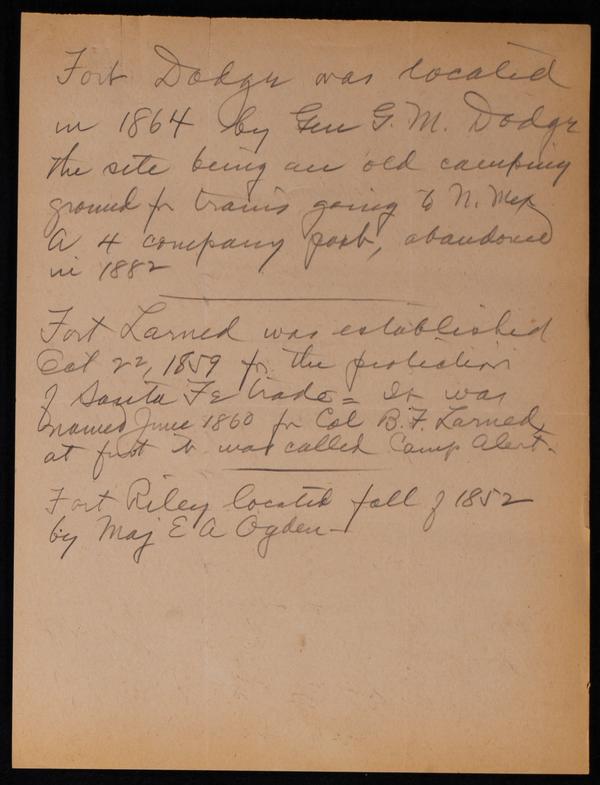 Fort Dodge was located
in 1864 by Gen G. M. Dodge
the site being an old camping
ground for trains going to N. Mex
A 4 company post, abandoned
in 1882
Fort Larned was established
Oct 22, 1859 for the protection
of Santa Fe trade = It was
named June 1860 for Col B. F. Larned
at first it was called Camp Alert.
Fort Riley located fall of 1852
by Maj E A Ogden -